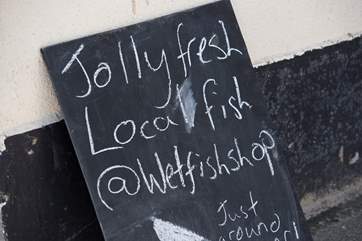 Jolly fresh
Local fish
@Wetfishshop
Just
around